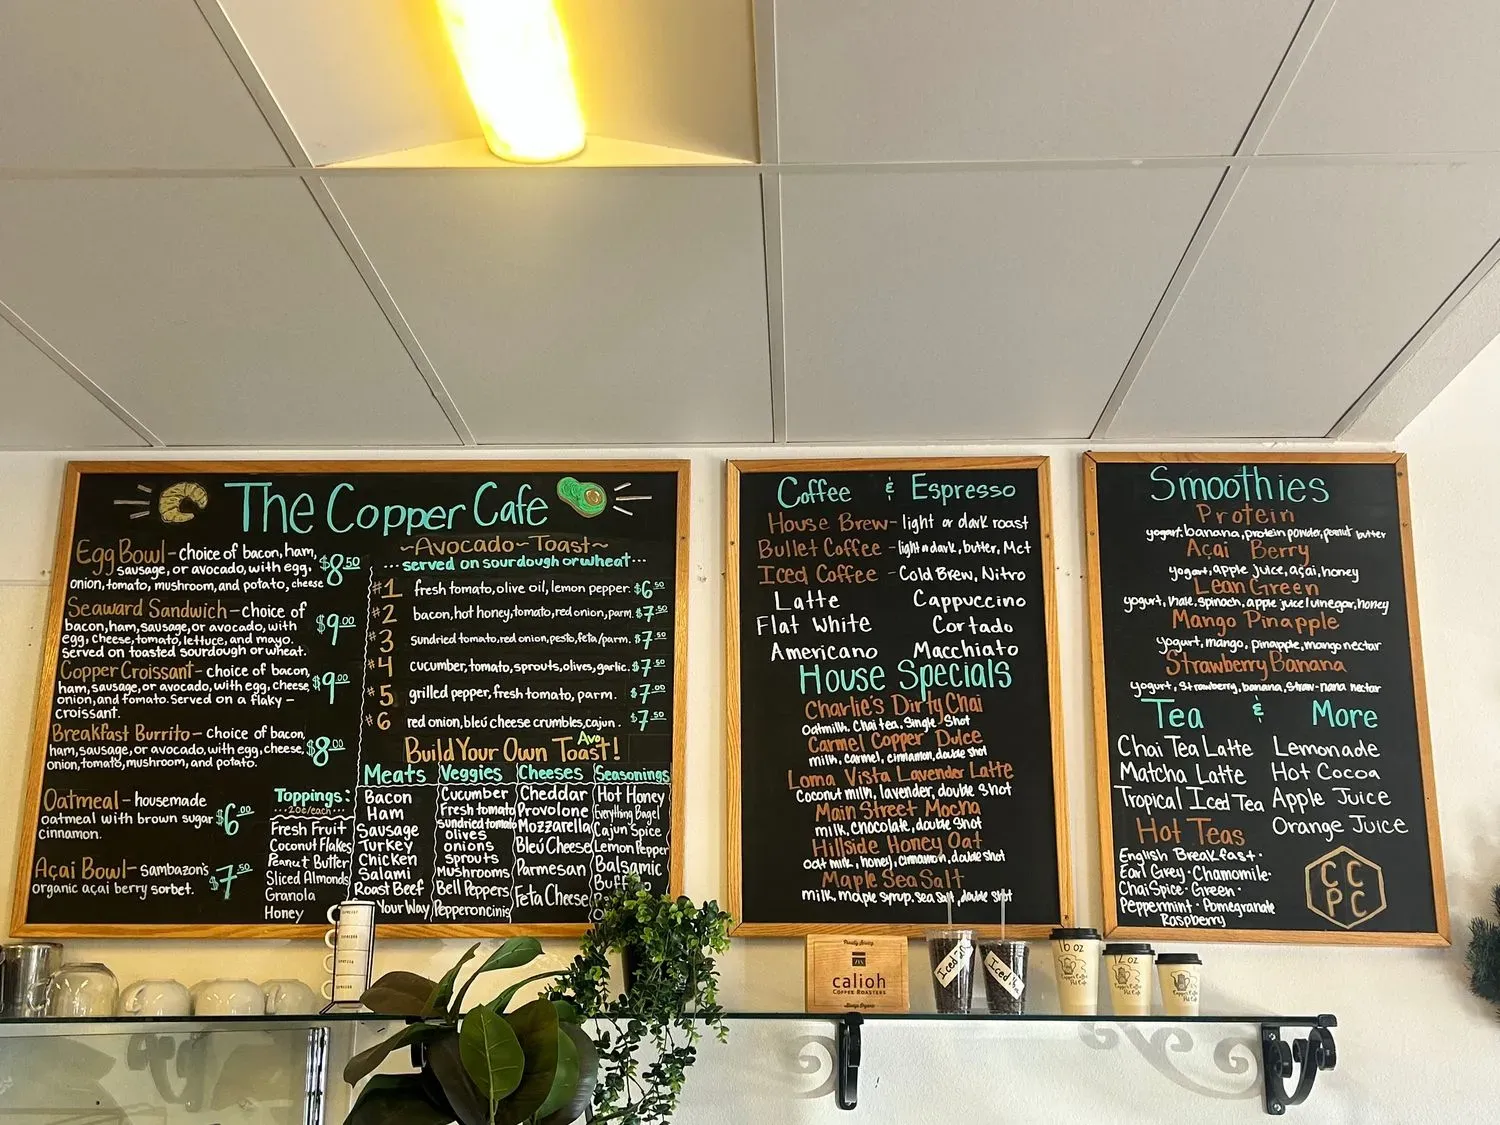 The Copper Cafe
Egg Bowl - choice of bacon, ham, $8.50
sausage, or avocado, with egg,
onion, tomato, mushroom, and potato, cheese
Seaward Sandwich - choice of
bacon, ham, sausage, or avocado, with $9.00
egg, cheese, tomato, lettuce, and mayo.
served on toasted sourdough or wheat.
Copper Croissant - choice of bacon,
ham, sausage, or avocado, with egg, cheese, $9.00
onion, and tomato. Served on a flaky -
croissant.
Breakfast Burrito - choice of bacon,
ham, sausage, or avocado, with egg, cheese, $8.00
onion, tomato, mushroom, and potato.
Oatmeal - housemade
oatmeal with brown sugar $6.00
cinnamon.
Açai Bowl - sambazon's
organic açai berry sorbet. $7.50
Toppings:
20¢/each
Fresh Fruit
Coconut Flakes
Peanut Butter
Sliced Almonds
Granola
Honey
~Avocado~Toast~
...served on sourdough or wheat...
#1 fresh tomato, olive oil, lemon pepper. $6.50
#2 bacon, hot honey, tomato, red onion, parm. $7.50
#3 sundried tomato, red onion, pesto, feta/parm. $7.50
#4 cucumber, tomato, sprouts, olives, garlic. $7.50
#5 grilled pepper, fresh tomato, parm. $7.00
#6 red onion, bleu cheese crumbles, cajun. $7.50
Build Your Own Avo Toast!
Meats
Bacon
Ham
Sausage
Turkey
Chicken
Salami
Roast Beef
Your Way
Veggies
Cucumber
Fresh tomato
Sundried tomato
olives
onions
sprouts
Mushrooms
Bell Peppers
Pepperoncinis
Cheeses
Cheddar
Provolone
Mozzarella
Bleu Cheese
Parmesan
Feta Cheese
Seasonings
Hot Honey
Everything Bagel
Cajun Spice
Lemon Pepper
Balsamic
Coffee & Espresso
House Brew - light or dark roast
Bullet Coffee - light or dark, butter, Mct
Iced Coffee - Cold Brew, Nitro
Latte Cappuccino
Flat White Cortado
Americano Macchiato
House Specials
Charlie's Dirty Chai
Oatmilk, Chai tea, Single Shot
Carmel Copper Dulce
milk, carmel, cinnamon, double shot
Loma Vista Lavender Latte
Coconut milk, lavender, double shot
Main Street Mocha
milk, chocolate, double shot
Hillside Honey Oat
oat milk, honey, cinnamon, double shot
Maple Sea Salt
milk, maple syrup, sea salt, double shot
Smoothies
Protein
yogurt, banana, protein powder, peanut butter
Açai Berry
yogurt, apple juice, açai, honey
Lean Green
yogurt, kale, spinach, apple juice/vinegar, honey
Mango Pinapple
yogurt, mango, pinapple, mango nectar
Strawberry Banana
yogurt, strawberry, banana, straw-nana nectar
Tea & More
Chai Tea Latte
Matcha Latte
Tropical Iced Tea
Lemonade
Hot Cocoa
Apple Juice
Orange Juice
Hot Teas
English Breakfast ·
Earl Grey · Chamomile ·
Chai Spice · Green ·
Peppermint · Pomegranate
Raspberry
C C
P C
Proudly Serving
calioh
COFFEE ROASTERS
Always Organic
Iced
Iced
16 oz
12 oz